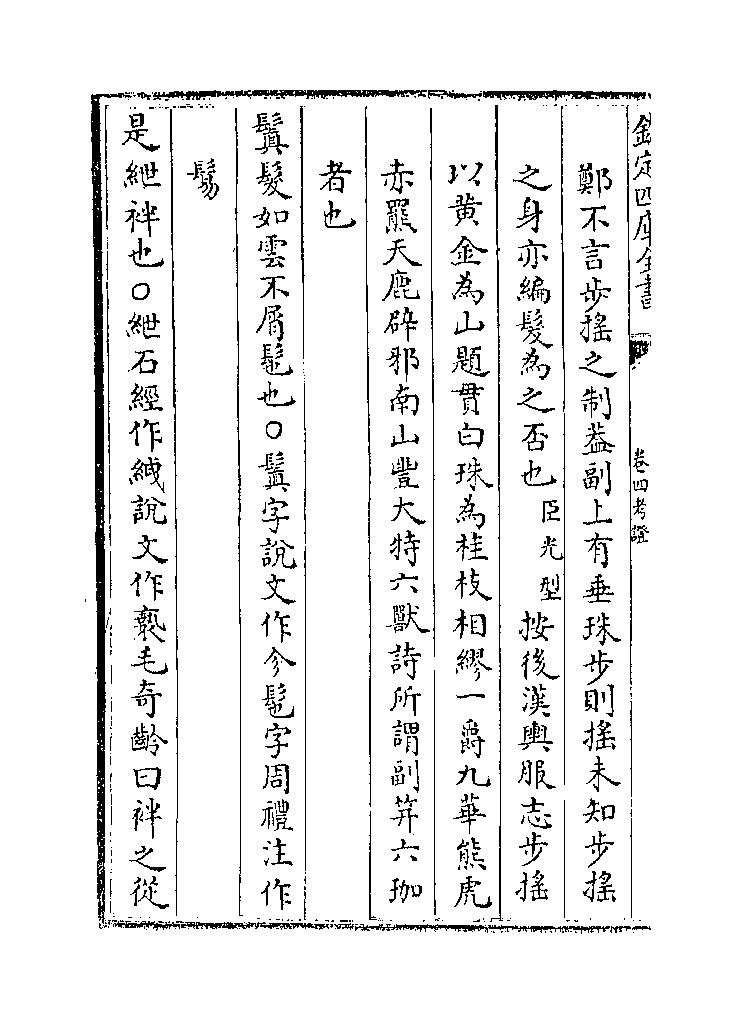 欽定四庫全書
卷四考證
鄭不言步揺之制葢副上有垂珠步則揺未知步搖
之身亦編髮為之否也臣光型按後漢輿服志步搖
以黄金為山題貫白珠為桂枝相繆一爵九華熊虎
赤羆天鹿辟邪南山豐大特六獸詩所謂副笄六珈
者也
鬒髮如雲不屑髢也○鬒字說文作㐱髢字周禮注作
髢
是紲袢也○紲石經作絏說文作褻毛奇齡曰袢之從